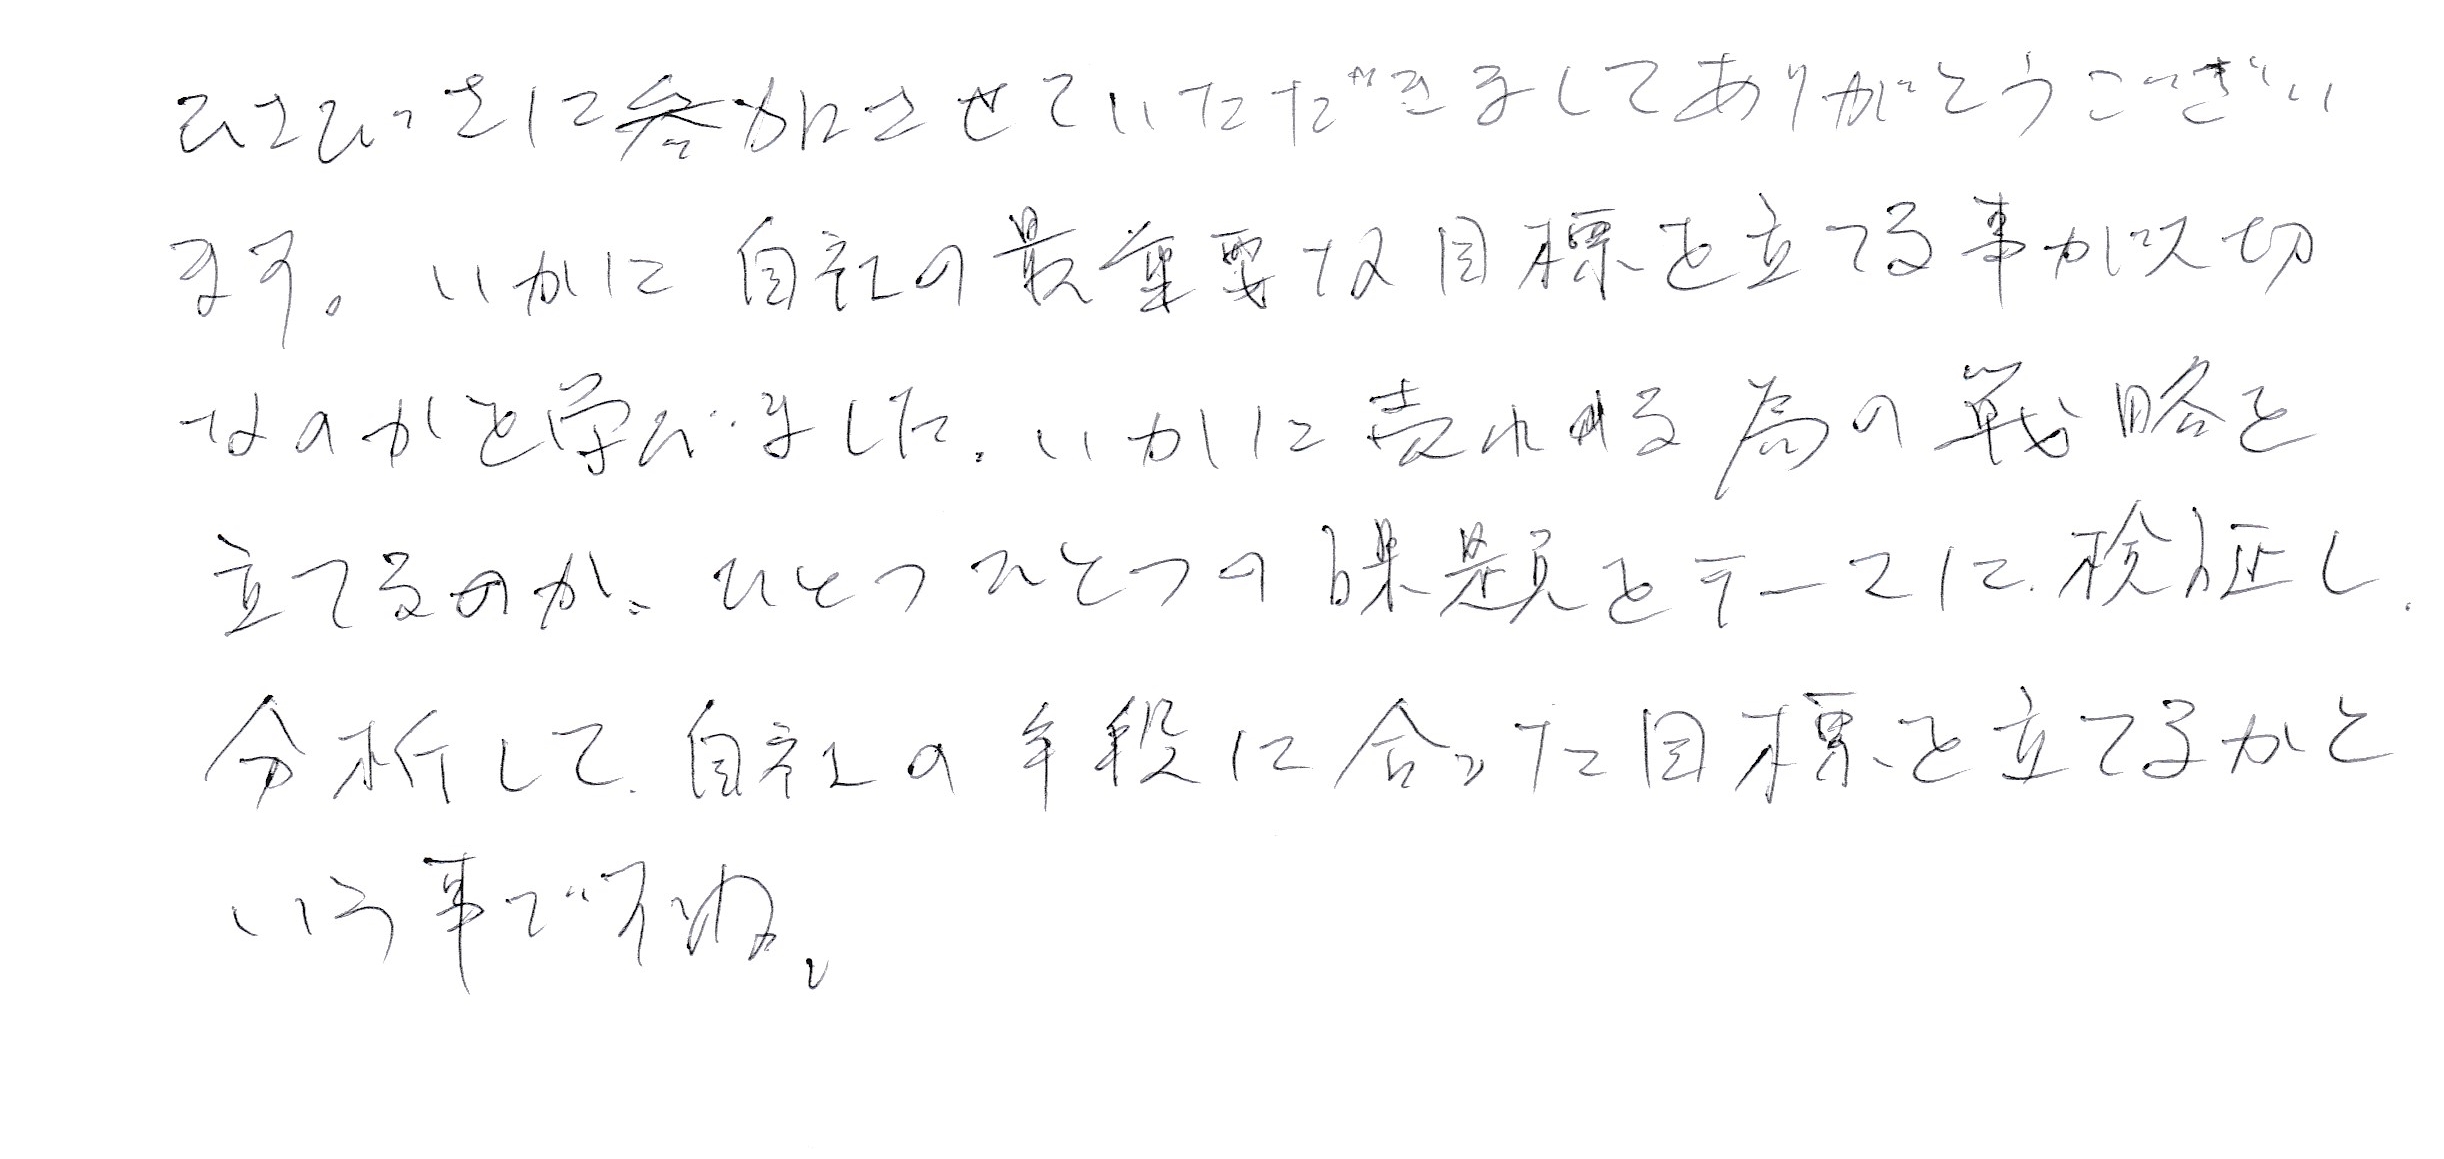 ひさびさに参加させていただきましてありがとうござい
ます。いかに自社の最重要な目標を立てる事が大切
なのかを学びました。いかに売れる為の戦略を
立てるのか、ひとつひとつの課題をテーマに、検証し、
分析して、自社の手段に合った目標を立てるかと
いう事ですね。